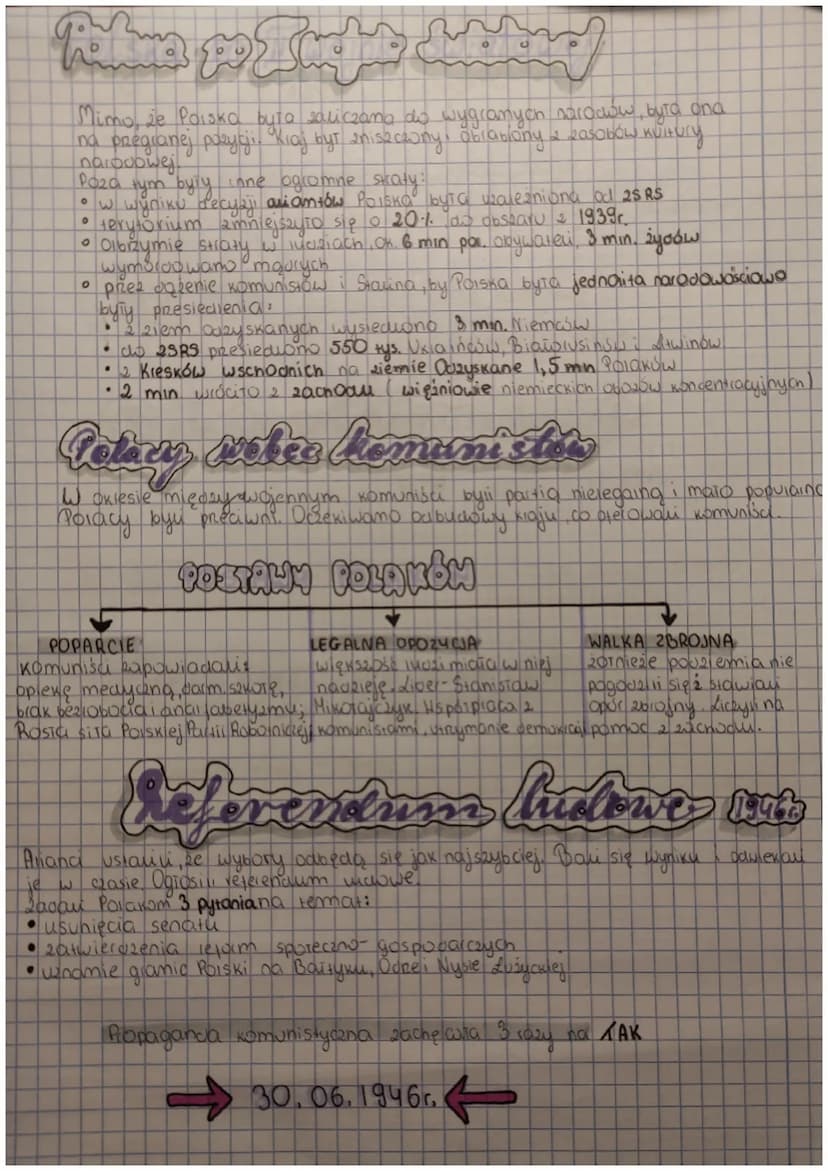 Polska po II wojnie światowej
Mimo, że Polska była zaliczana do wygranych narodów, była ona
na przegranej pozycji. Kraj był zniszczony i obrabiony z zasobów kultury
narodowej.
Poza tym były inne ogromne straty:
• w wyniku decyzji aliantów Polska była uzależniona od ZSRS
• terytorium zmniejszyło się o 20% do obszaru z 1939r.
• Olbrzymie straty w ludziach, ok. 6 min pol. obywateli, 3 min. żydów
wymordowano mądrych
• przez dążenie komunistów i Stalina, by Polska była jednolita narodowościowo
były przesiedlenia:
• z ziem odzyskanych wysiedlono 3 min. Niemców
• do ZSRS przesiedlono 550 tys. Ukraińców, Białorusinów i Litwinów
• z Kresków wschodnich na ziemie Odzyskane 1,5 mn Polaków
• 2 min wróciło z zachodu (więźniowie niemieckich obozów koncentracyjnych)
Polacy wobec komunistów
W okresie międzywojennym komuniści byli partią nielegalną i mało popularną
Polacy byli przeciwni. Oczekiwano odbudowy kraju, co oferowali komuniści.
POSTAWY POLAKÓW
POPARCIE LEGALNA OPOZYCJA WALKA ZBROJNA
komuniści zapowiadali: większość ludzi miała w niej żołnieże podziemia nie
opiekę medyczną, darm. szkołę, nadzieję. Lider-Stanisław pogodzili się i stawiali
brak bezrobocia i analfabetyzmu; Mikołajczyk. Współpraca z opór zbrojny. Liczyli na
Rosła siła Polskiej Partii Robotniczej komunistami, utrzymanie demokracji pomoc z zachodu.
Referendum ludowe 1946r.
Alianci ustalili, że wybory odbędą się jak najszybciej. Bali się wyniku i odwlekali
je w czasie. Ogłosili referendum ludowe.
Zadali Polakom 3 pytania na temat:
• usunięcia senatu
• zatwierdzenia reform społeczno-gospodarczych
• uznanie granic Polski na Bałtyku, Odrze i Nysie Łużyckiej
Propaganda komunistyczna zachęcała 3 razy na TAK
30.06.1946r.